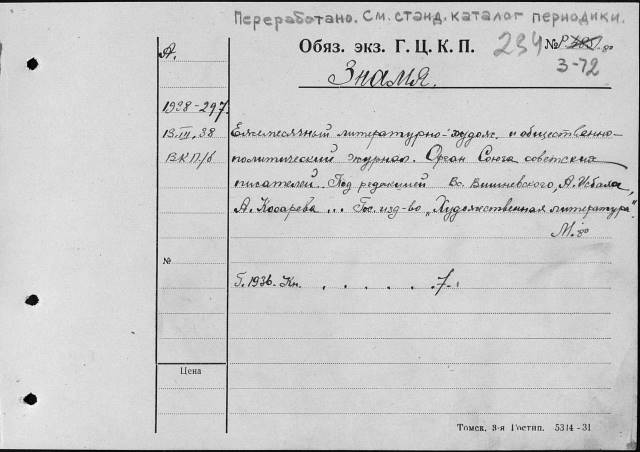 Переработано. См. станд. каталог периодики.
Обяз. экз. Г. Ц. К. П. 234 № 80
А. Знамя. З-72
1938-297.
13.III.38 Ежемесячный литературно-худож. и общественно-
ВКП/б политический журнал. Орган Союза советских
писателей. Под редакцией Вс. Вишневского, А. Исбаха,
А. Косарева ... Гос. изд-во „Художественная литература".
М. 8°
№
Г. 1936. Кн. . . . . . 7.
Цена
Томск, 3-я Гостип. 5314-31